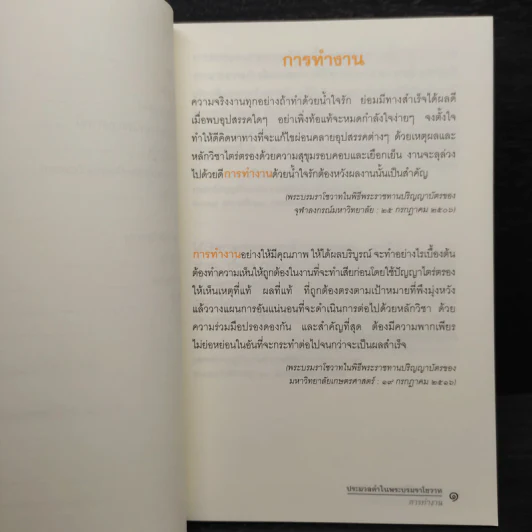 การทำงาน
ความจริงงานทุกอย่างถ้าทำด้วยน้ำใจรัก ย่อมมีทางสำเร็จได้ผลดี
เมื่อพบอุปสรรคใดๆ อย่าเพิ่งท้อแท้จะหมดกำลังใจง่ายๆ จงตั้งใจ
ทำให้ดีคิดหาทางที่จะแก้ไขผ่อนคลายอุปสรรคต่างๆ ด้วยเหตุผลและ
หลักวิชาไตร่ตรองด้วยความสุขุมรอบคอบและเยือกเย็น งานจะลุล่วง
ไปด้วยดีการทำงานด้วยน้ำใจรักต้องหวังผลงานนั้นเป็นสำคัญ
(พระบรมราโชวาทในพิธีพระราชทานปริญญาบัตรของ
จุฬาลงกรณ์มหาวิทยาลัย : ๒๕ กรกฎาคม ๒๕๐๖)
การทำงานอย่างให้มีคุณภาพ ให้ได้ผลบริบูรณ์ จะทำอย่างไรเบื้องต้น
ต้องทำความเห็นให้ถูกต้องในงานที่จะทำเสียก่อนโดยใช้ปัญญาไตร่ตรอง
ให้เห็นเหตุที่แท้ ผลที่แท้ ที่ถูกต้องตรงตามเป้าหมายที่พึงมุ่งหวัง
แล้ววางแผนการอันแน่นอนที่จะดำเนินการต่อไปด้วยหลักวิชา ด้วย
ความร่วมมือปรองดองกัน และสำคัญที่สุด ต้องมีความพากเพียร
ไม่ย่อหย่อนในอันที่จะกระทำต่อไปจนกว่าจะเป็นผลสำเร็จ
(พระบรมราโชวาทในพิธีพระราชทานปริญญาบัตรของ
มหาวิทยาลัยเกษตรศาสตร์ : ๑๙ กรกฎาคม ๒๕๑๖)
ประมวลคำในพระบรมราโชวาท ๑
การทำงาน